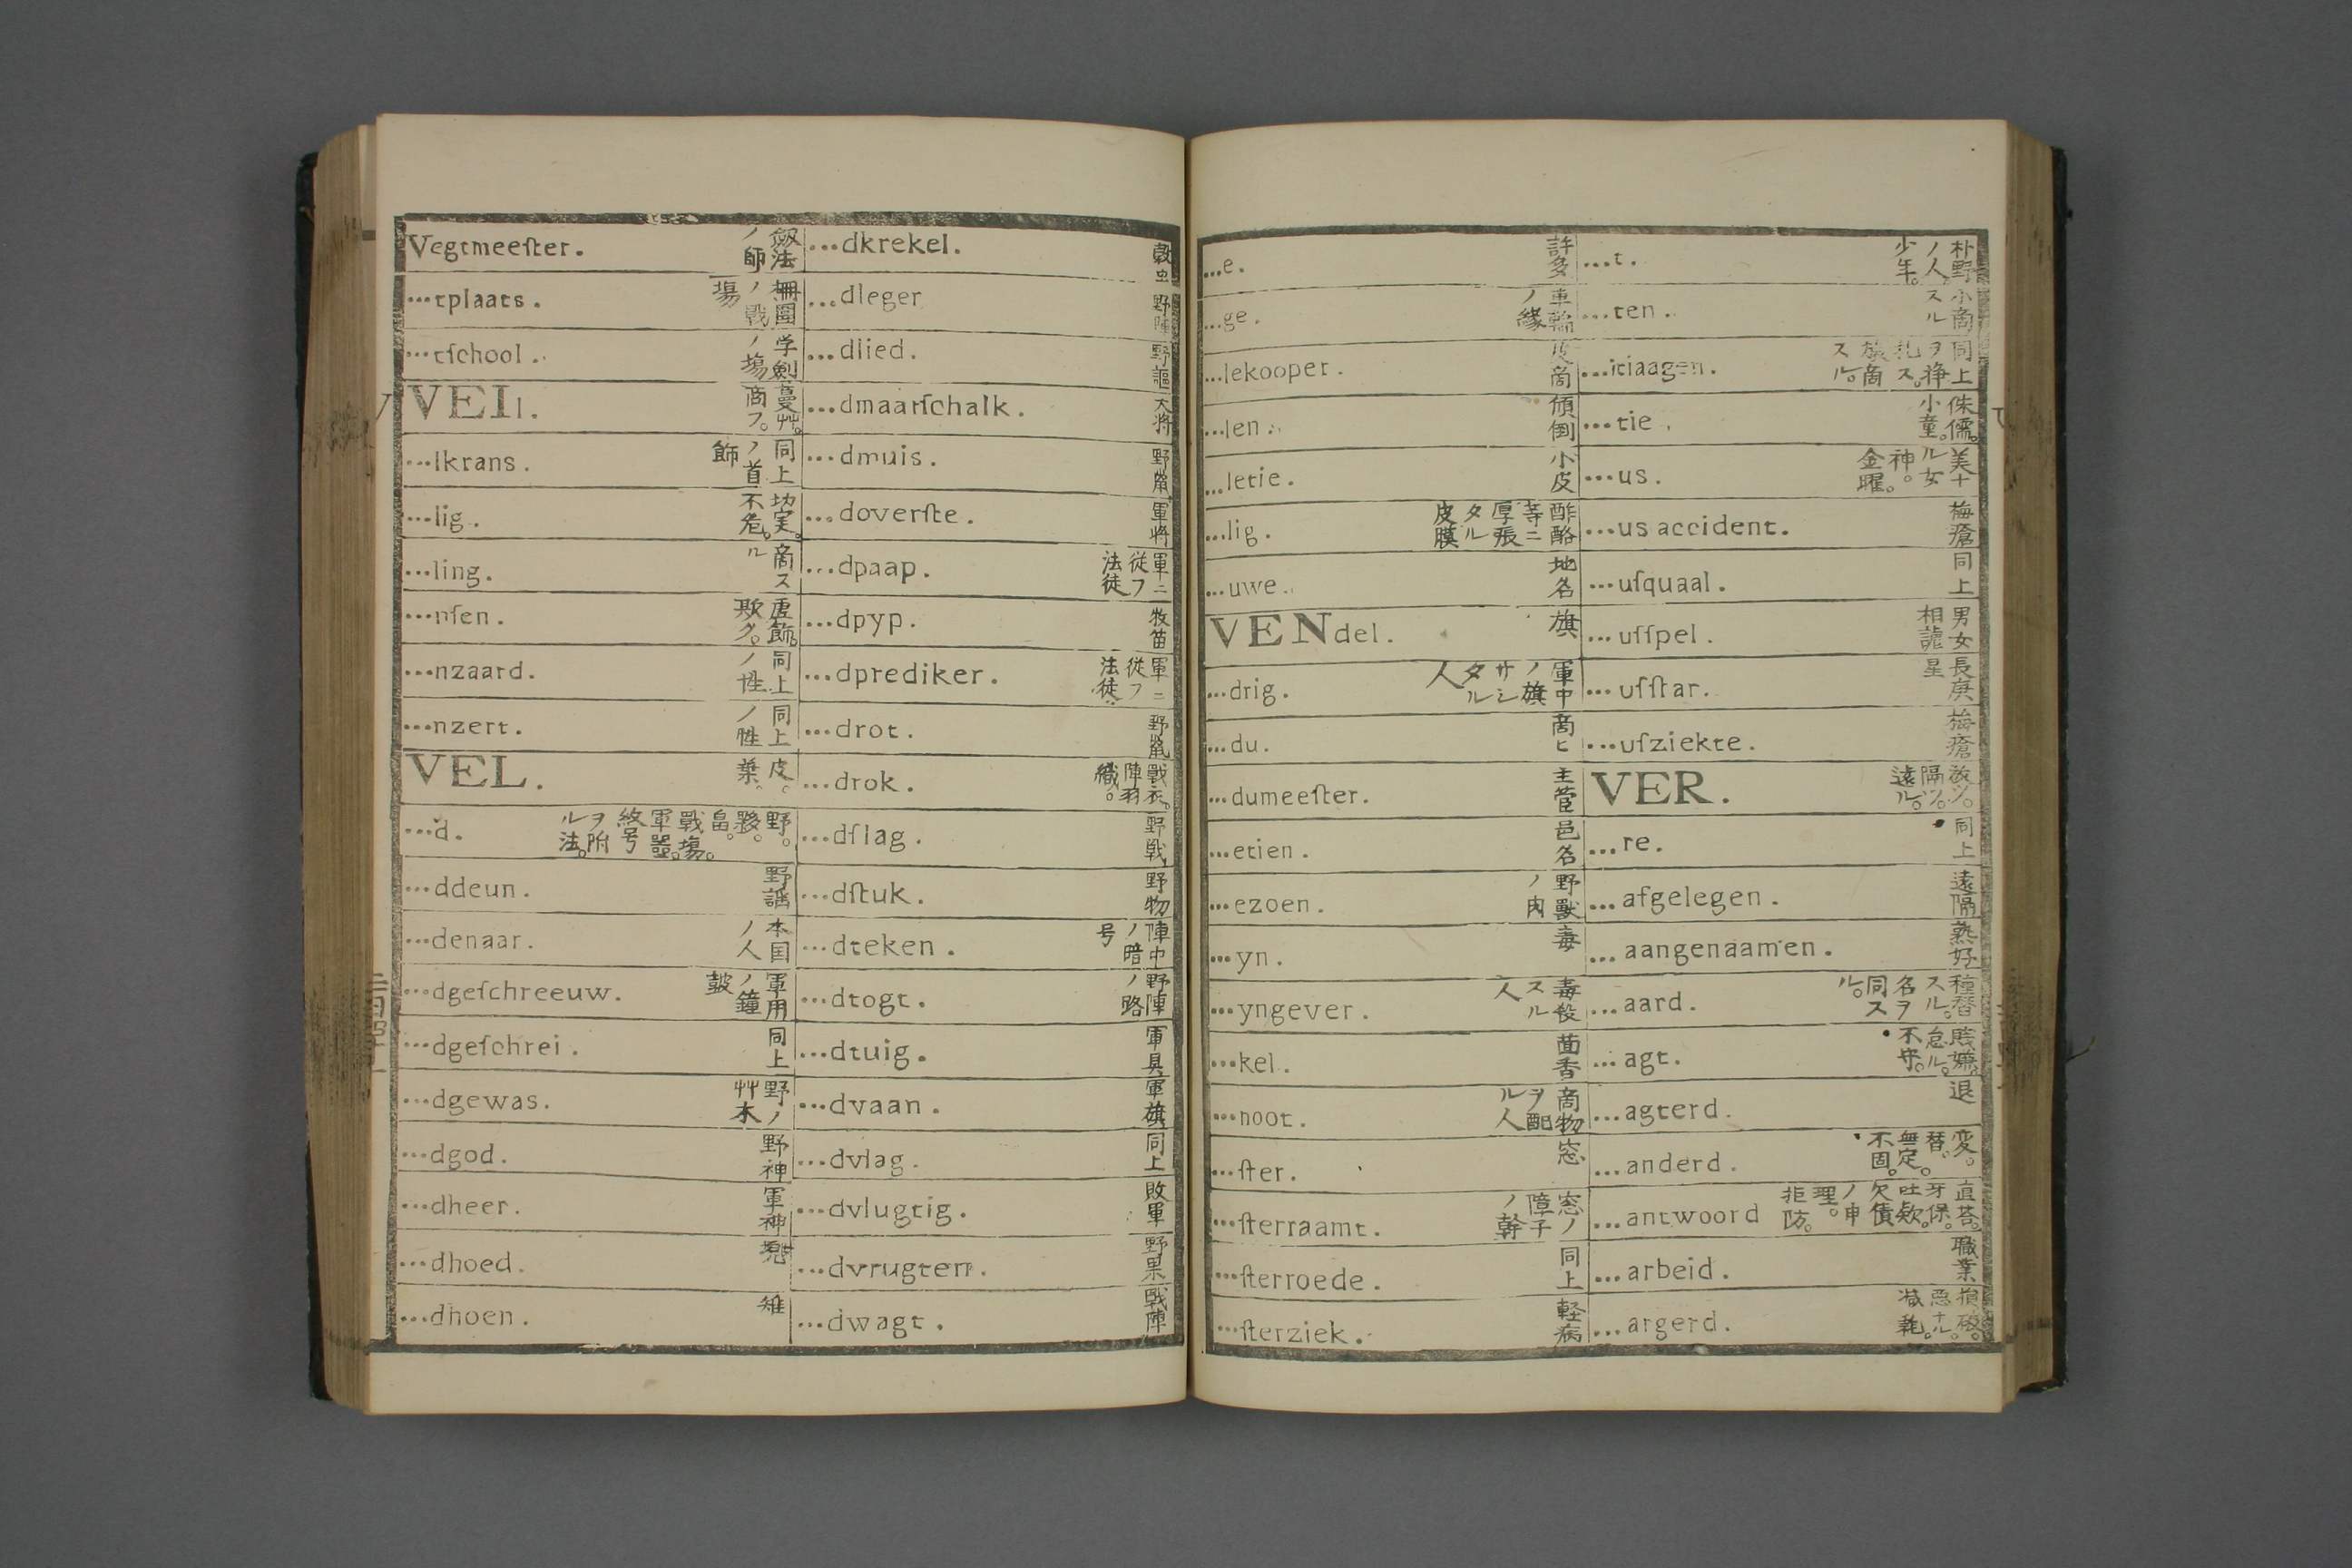 Vegtmeeſter. 劔法ノ師
...tplaats. 柵圍ノ戰場
...tſchool. 学劍ノ場
VEIl. 蔓艸。商フ。
...lkrans. 同上ノ首飾
...lig. 功実。不危。
...ling. 商スル
...nſen. 虚飾。欺ク。
...nzaard. 同上ノ性
...nzert. 同上ノ性
VEL. 皮。葉。
...d.
...ddeun. 野謡
...denaar. 本国ノ人
...dgeſchreeuw. 軍用ノ鐘皷
...dgeſchrei. 同上
...dgewas. 野ノ艸木
...dgod. 野神
...dheer. 軍神
...dhoed.
...dhoen. 雉
...dkrekel. 穀虫
...dleger 野陣
...dlied. 野謳
...dmaarſchalk. 大将
...dmuis. 野鼠
...doverſte. 軍将
...dpaap. 軍ニ従フ法徒
...dpyp. 牧笛
...dprediker. 軍ニ従フ法徒
...drot. 野鼠
...drok. 戰衣。陣羽織。
...dſlag. 野戰
...dſtuk. 野物
...dteken. 陣中ノ暗号
...dtogt. 野陣ノ路
...dtuig. 軍具
...dvaan. 軍旗
...dvlag. 同上
...dvlugtig. 敗軍
...dvrugten. 野果
...dwagt. 戰陣
...e. 許多
...ge. 車輪ノ縁
...lekooper. 皮商
...len. 傾倒
...letie. 小皮
...lig. 酢酪等ニ厚張タル皮膜
...uwe. 地名
VENdel. 旗
...drig. 軍中ノ旗サシタル人
...du. 商ヒ
...dumeeſter. 主菅
...etien. 邑名
...ezoen. 野獸ノ肉
...yn. 毒
...yngever. 毒殺スル人
...kel. 茴香
...noot. 商物ヲ配ル人
...ſter. 窓
...ſterraamt. 窓ノ障子ノ幹
...ſterroede. 同上
...ſterziek. 軽病
...t. 朴野ノ人。少年。
...ten. 小商スル
...itiaagen.
...tie. 侏儒。小童。
...us. 美ナル女神。金曜。
...us accident. 梅瘡
...uſquaal. 同上
...uſſpel. 男女相謔
...uſſtar. 長庚星
...uſziekte. 梅瘡
VER. 放ツ。隔ツ。遠ル。
...re. 同上
...afgelegen. 遠隔
...aangenaamen. 熟好
...aard. 種替スル。名ヲ同スル。
...agt. 賎嫌。怠ル。不守。
...agterd. 退
...anderd. 変。替。無定。不固。
...antwoord 直荅。牙保。吐欵。欠債ノ申理。拒防。
...arbeid. 職業
...argerd.